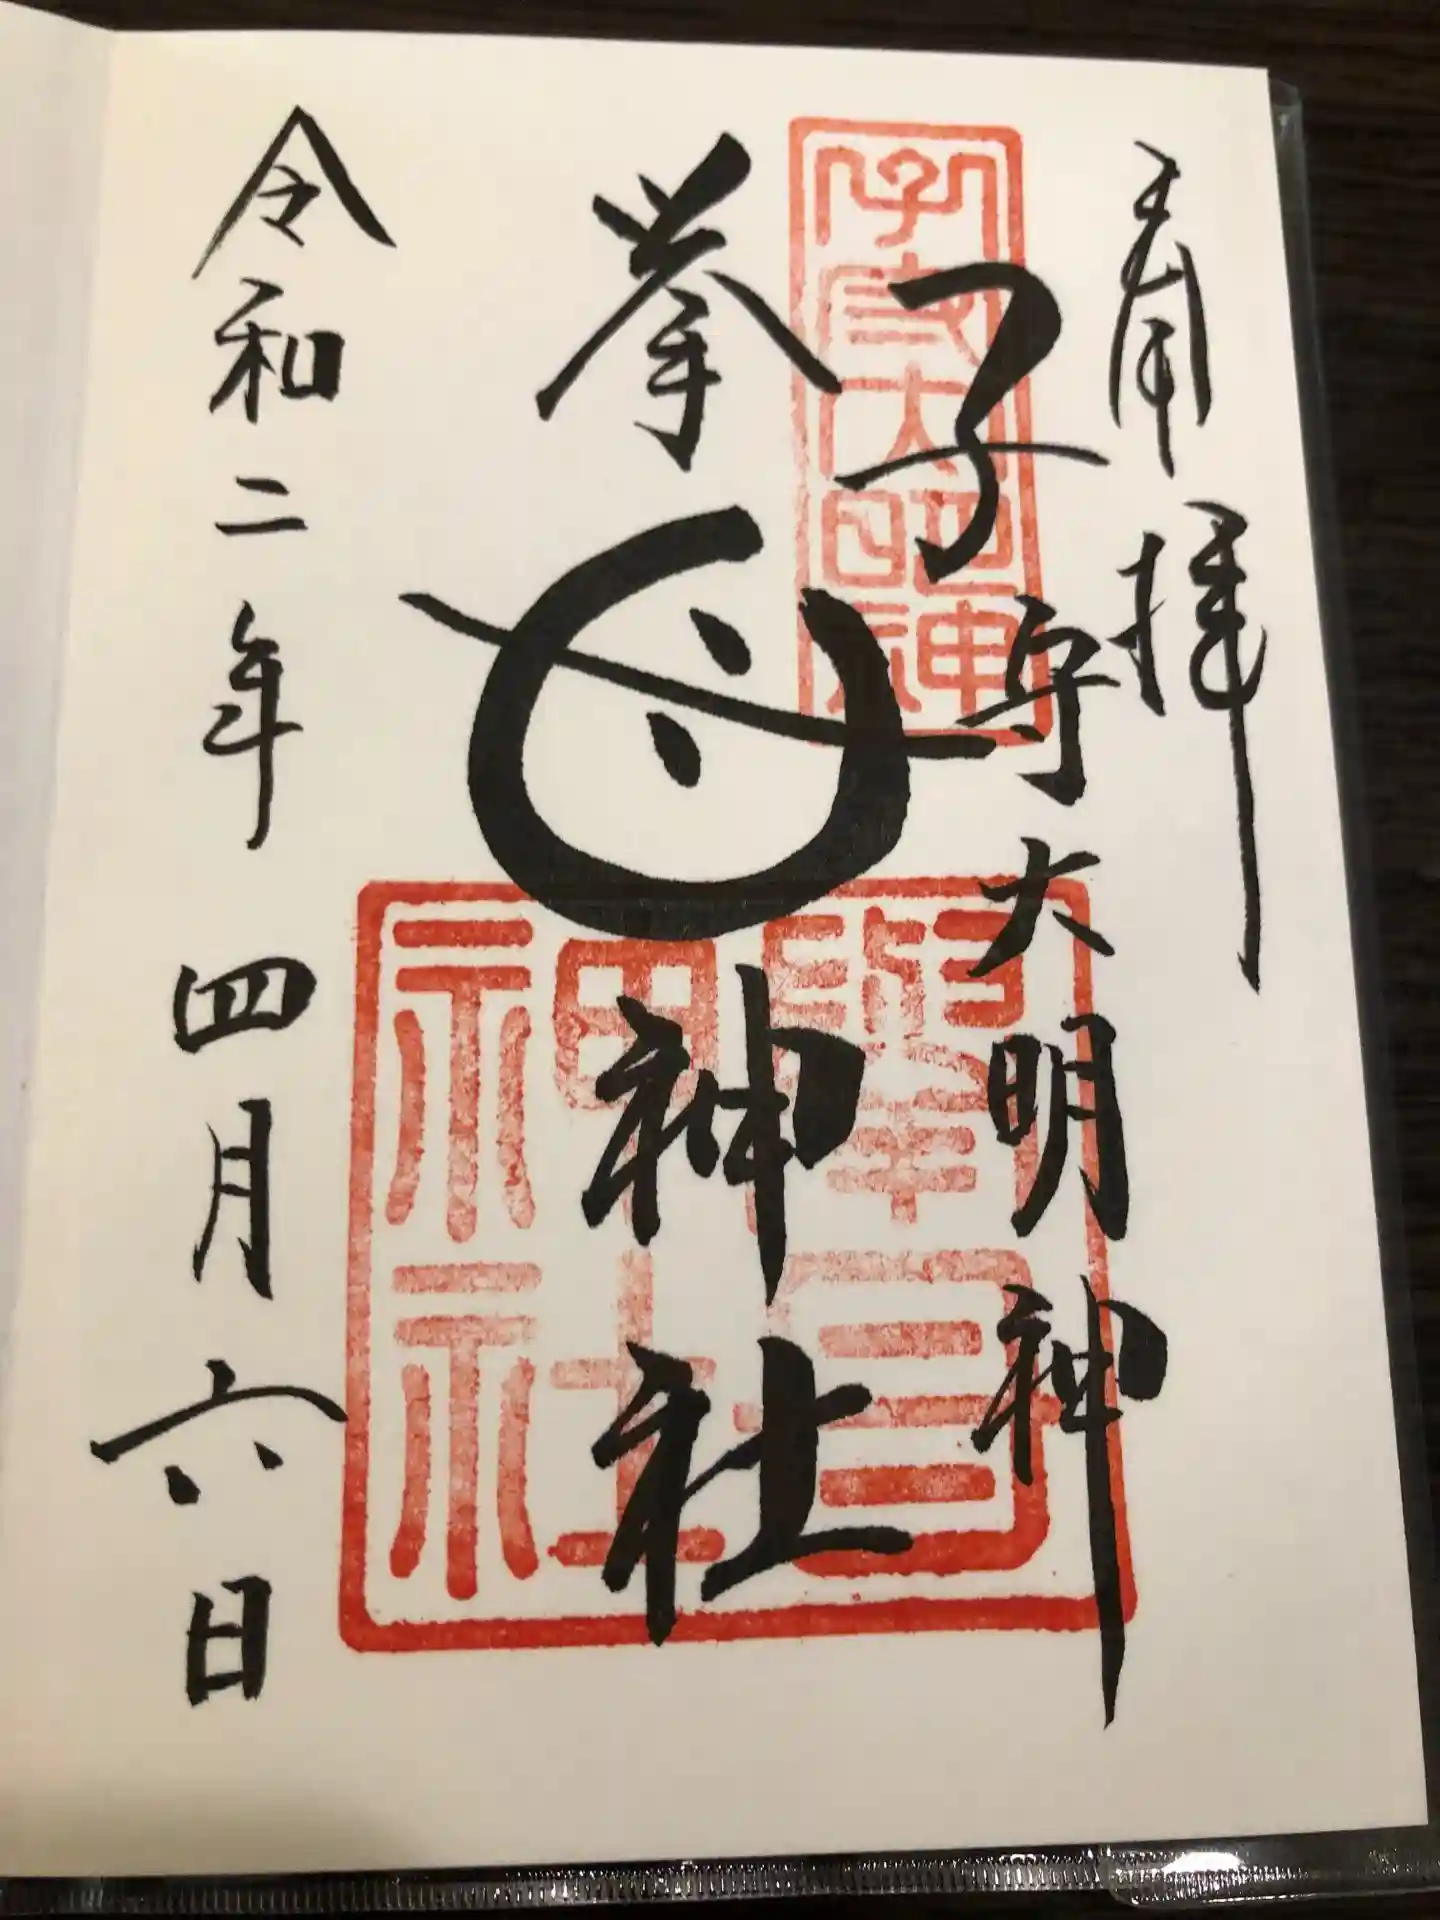 奉拝
子守大明神
挙母神社
令和二年四月六日
子守大明神
擧母神社